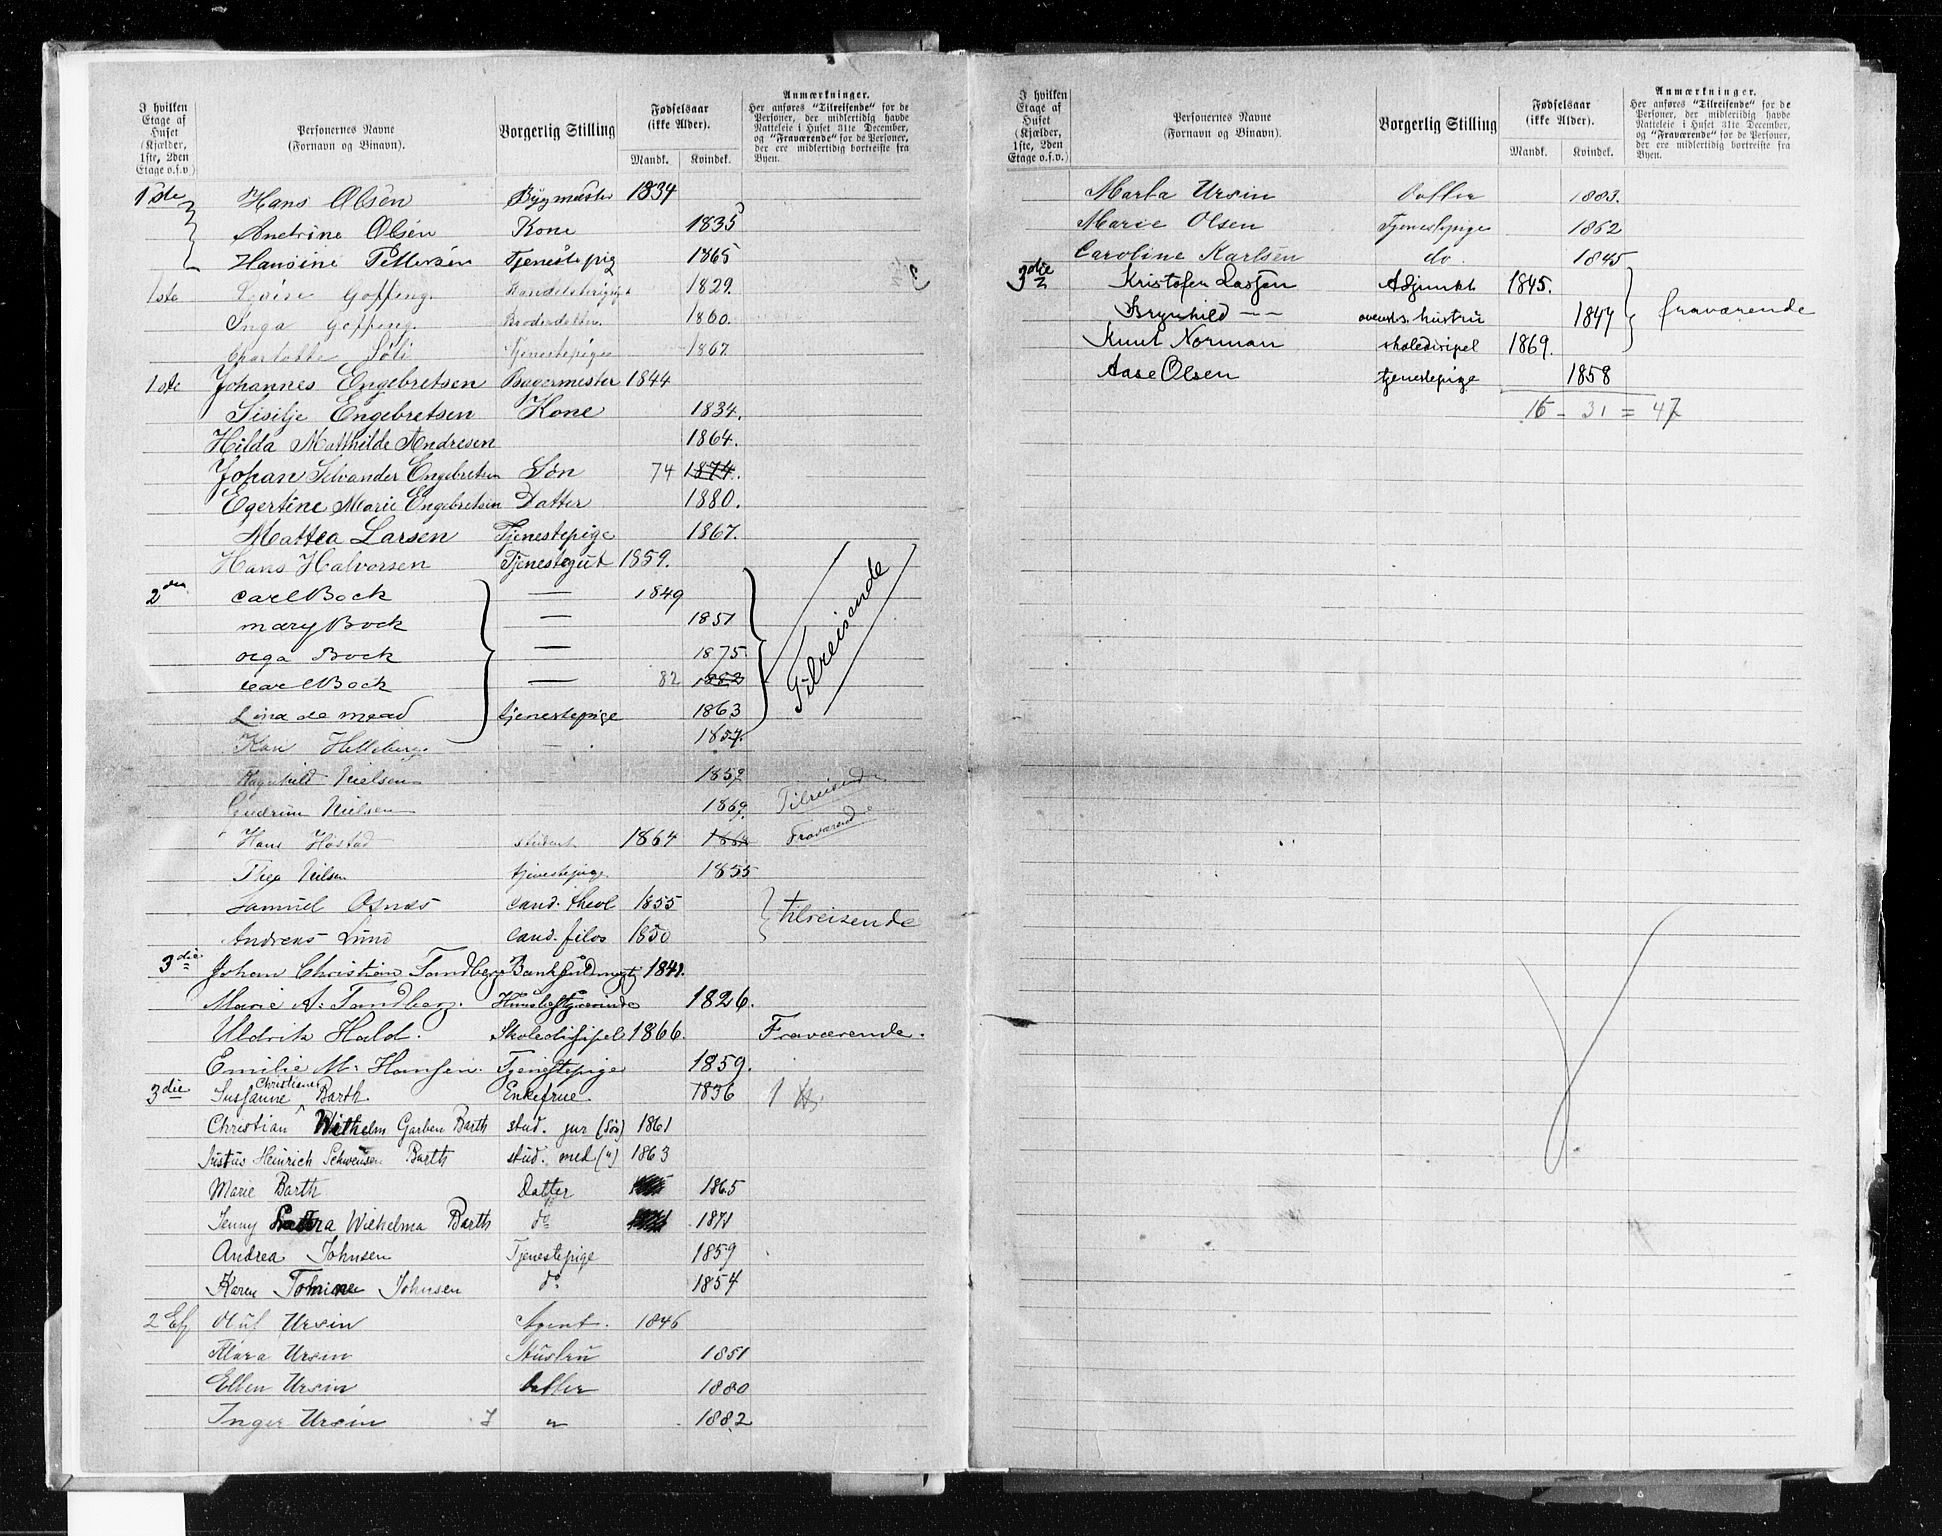 I hvilken Etage af Huset (Kjælder, 1ste, 2den Etage o.s.v.)
Personernes Navne (Fornavn og Binavn).
Borgerlig Stilling
Fødselsaar (ikke Alder).
Mandk. Kvindek.
Anmærkninger.
Her anføres "Tilreisende" for de Personer, der midlertidig havde Natteleie i Huset 31te December, og "Fraværende" for de Personer, der ere midlertidig bortreiste fra Byen.
1ste Hans Olsen Bygmester 1834
Anetrine Olsen Kone 1835
Hansine Pettersen Tjenestepig 1865
1ste Goffeng 1829.
Inga Goffeng. Broderdatter. 1860.
Charlotte Tjenestepige 1867
1ste Johannes Engebretsen Bagermester 1844
Sisilje Engebretsen Kone 1834.
Hilda Matthilde Andresen 1864.
Johan Selvander Engebretsen Søn 74 1874.
Egertine Marie Engebretsen Datter 1880.
Mattea Larsen Tjenestepige 1867.
Hans Halvorsen Tjenestegut 1859.
2den Carl Bock — 1849
Mary Bock — 1851
Olga Bock — 1875
Carl Bock — 82 1882
Tilreisende
Lina de Mead tjenestepige 1863
Kari Helleberg. — 1857.
Ragnhild Nielsen 1852
Gudrun Nielsen 1869. Tilreisende
Hans Hostad student 1864 1864 Fraværende
Thea Nilsen tjenestepige 1855
Samuel Osnes Cand. theol 1855
tilreisende
Andreas Lund Cand. filos 1850
3die Johan Christian Tandberg Bankfuldmegtig 1841.
Marie A. Tandberg. Husbestyrerinde 1826.
Uldrik Hald. Skoledisipel 1866. Fraværende.
Emilie M. Hansen. Tjenestepige 1859.
3die Susanne Christiane Barth Enkefrue. 1836
Christian Wilhelm Garben Barth stud. jur (Søn) 1861
Justus Heinrich Schwensen Barth stud. med (") 1863
Marie Barth Datter 1865
Jenny Wilhelma Barth do 1871
Andrea Johnsen Tjenestepige 1859
Karen Tomine Johnsen do 1854
2 Etg Oluf Ursin Agent. 1846
Klara Ursin Hustru 1851
Ellen Ursin Datter 1880
Inger Ursin " 1882
I hvilken Etage af Huset (Kjælder, 1ste, 2den Etage o.s.v.)
Personernes Navne (Fornavn og Binavn).
Borgerlig Stilling
Fødselsaar (ikke Alder).
Mandk. Kvindek.
Anmærkninger.
Her anføres "Tilreisende" for de Personer, der midlertidig havde Natteleie i Huset 31te December, og "Fraværende" for de Personer, der ere midlertidig bortreiste fra Byen.
Marta Ursin Datter 1883.
Marie Olsen Tjenestepige 1862
Caroline Karlsen do. 1845
3die Kristofer Lassen Adjunkt 1845.
Brynhild — — hustru 1847 fraværende
Knut Norman skoledisipel 1869.
Aase Olsen tjenestepige 1858
16 - 31 = 47